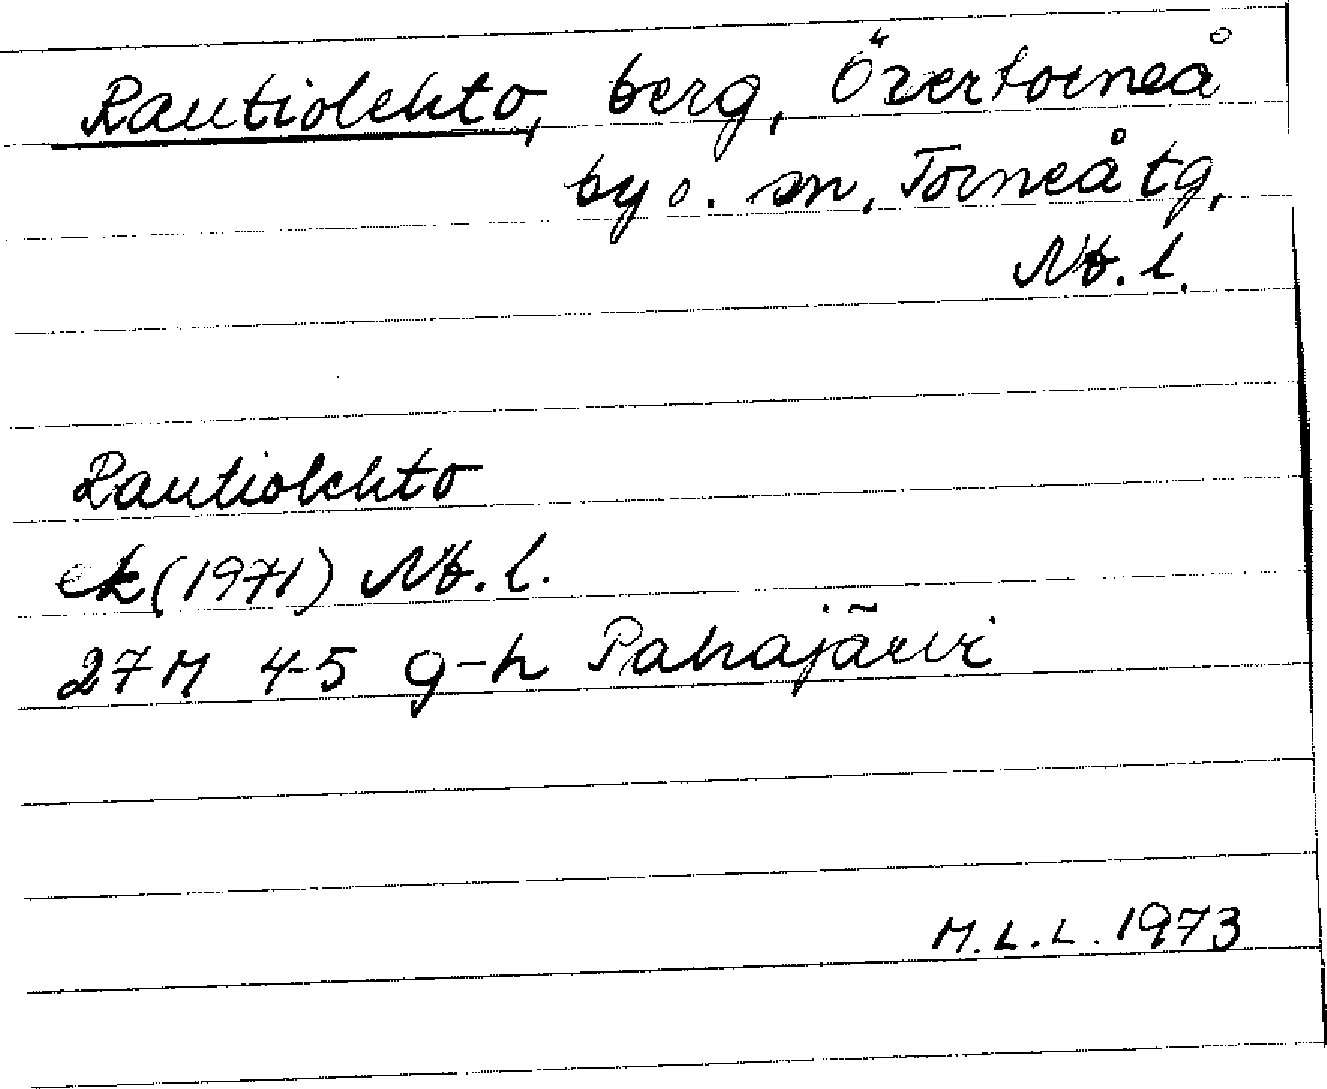 Rautiolehto, berg, Övertorneå
by o. sn, Torneå tg,
Nb. l.
Rautiolehto
ek (1971) Nb. l.
27M 4-5 g-h Pahajärvi
M.L.L. 1973